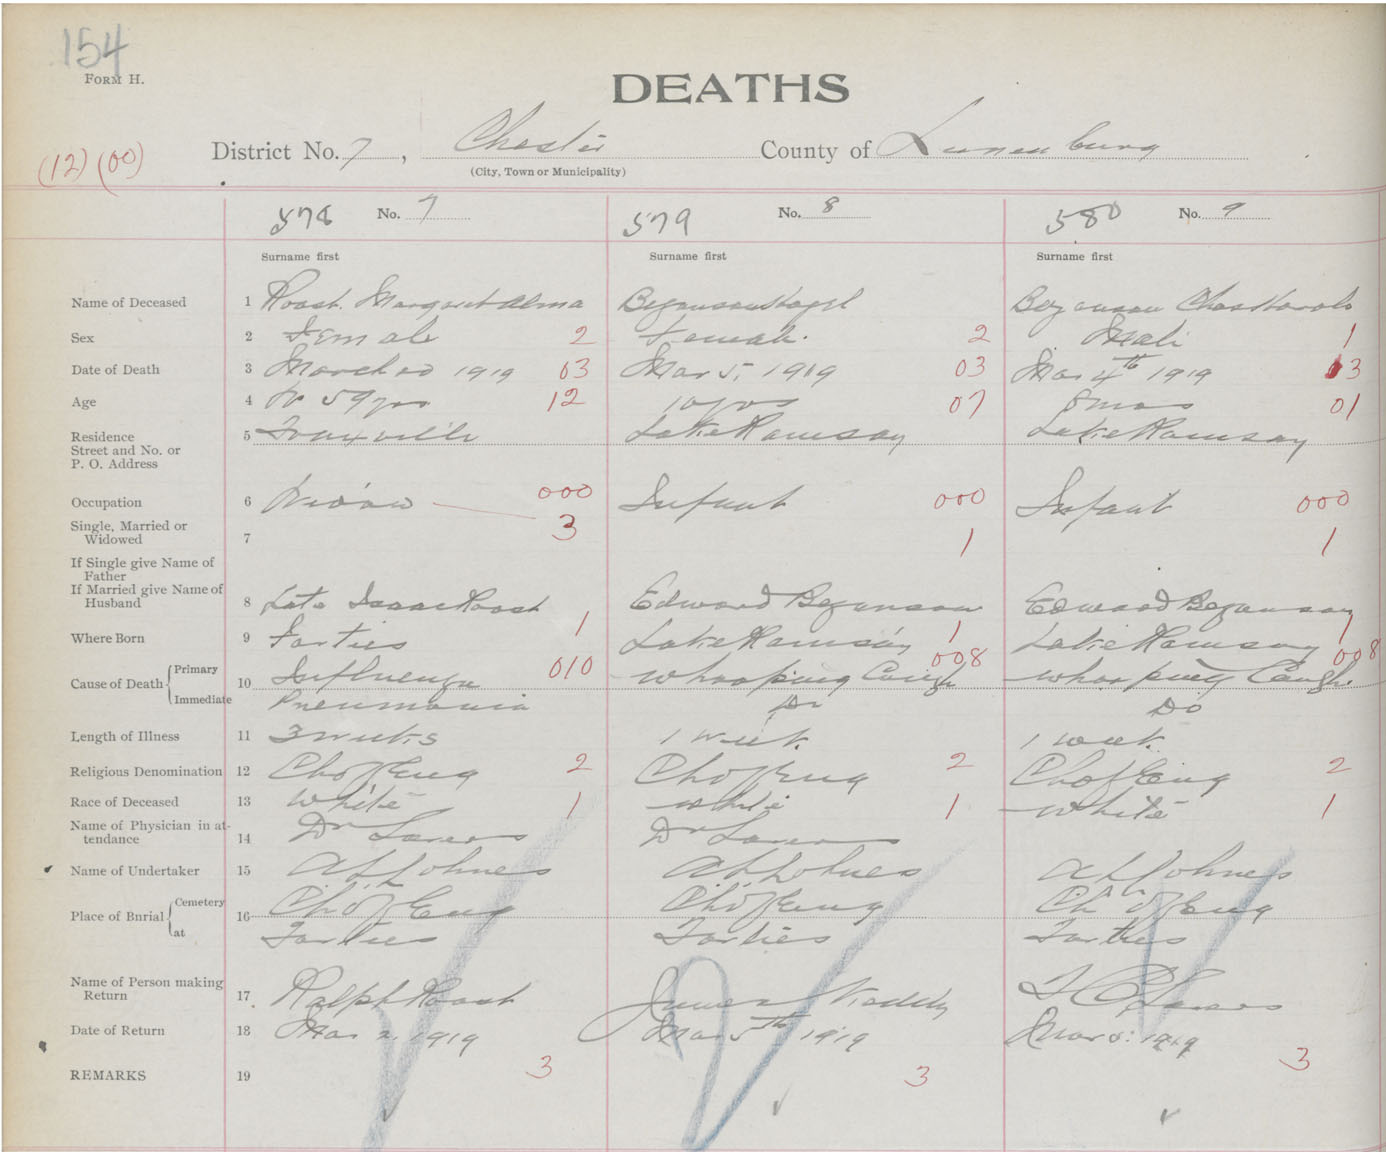 154
FORM H.
DEATHS
(12) (00)
District No. 7, Chester County of Lunenburg
(City, Town or Municipality)
578 No. 7 579 No. 8 580 No. 9
Surname first Surname first Surname first
Name of Deceased 1 Roast Margaret Alma Bezanson Hazel Bezanson Chas Harold
Sex 2 Female 2 Female. 2 Male 1
Date of Death 3 March 1919 03 Mar 5. 1919 03 Mar 4th 1919 03
Age 4 59 yrs 12 10 yrs 07 8 mos 01
Residence 5 Lake Ramsay Lake Ramsay
Street and No. or
P. O. Address
Occupation 6 Widow 000 Infant 000 Infant 000
Single, Married or
Widowed 7 3 1 1
If Single give Name of
Father
If Married give Name of
Husband 8 Late Isaac Roast Edward Bezanson Edward Bezanson
Where Born 9 Forties 1 Lake Ramsay 1 Lake Ramsay 1
Cause of Death Primary 10 Influenza 010 Whooping Cough 008 Whooping Cough 008
Immediate Pneumonia Do Do
Length of Illness 11 3 weeks 1 week. 1 week.
Religious Denomination 12 Ch of Eng 2 Ch of Eng 2 Ch of Eng 2
Race of Deceased 13 White 1 White 1 White 1
Name of Physician in at-
tendance 14 Dr Dr
Name of Undertaker 15
Place of Burial Cemetery 16 Ch of Eng Ch of Eng Ch of Eng
at Forties Forties Forties
Name of Person making
Return 17 Ralph Roast James
Date of Return 18 Mar 2. 1919 Mar 5th 1919 Mar 5: 1919
REMARKS 19 3 3 3